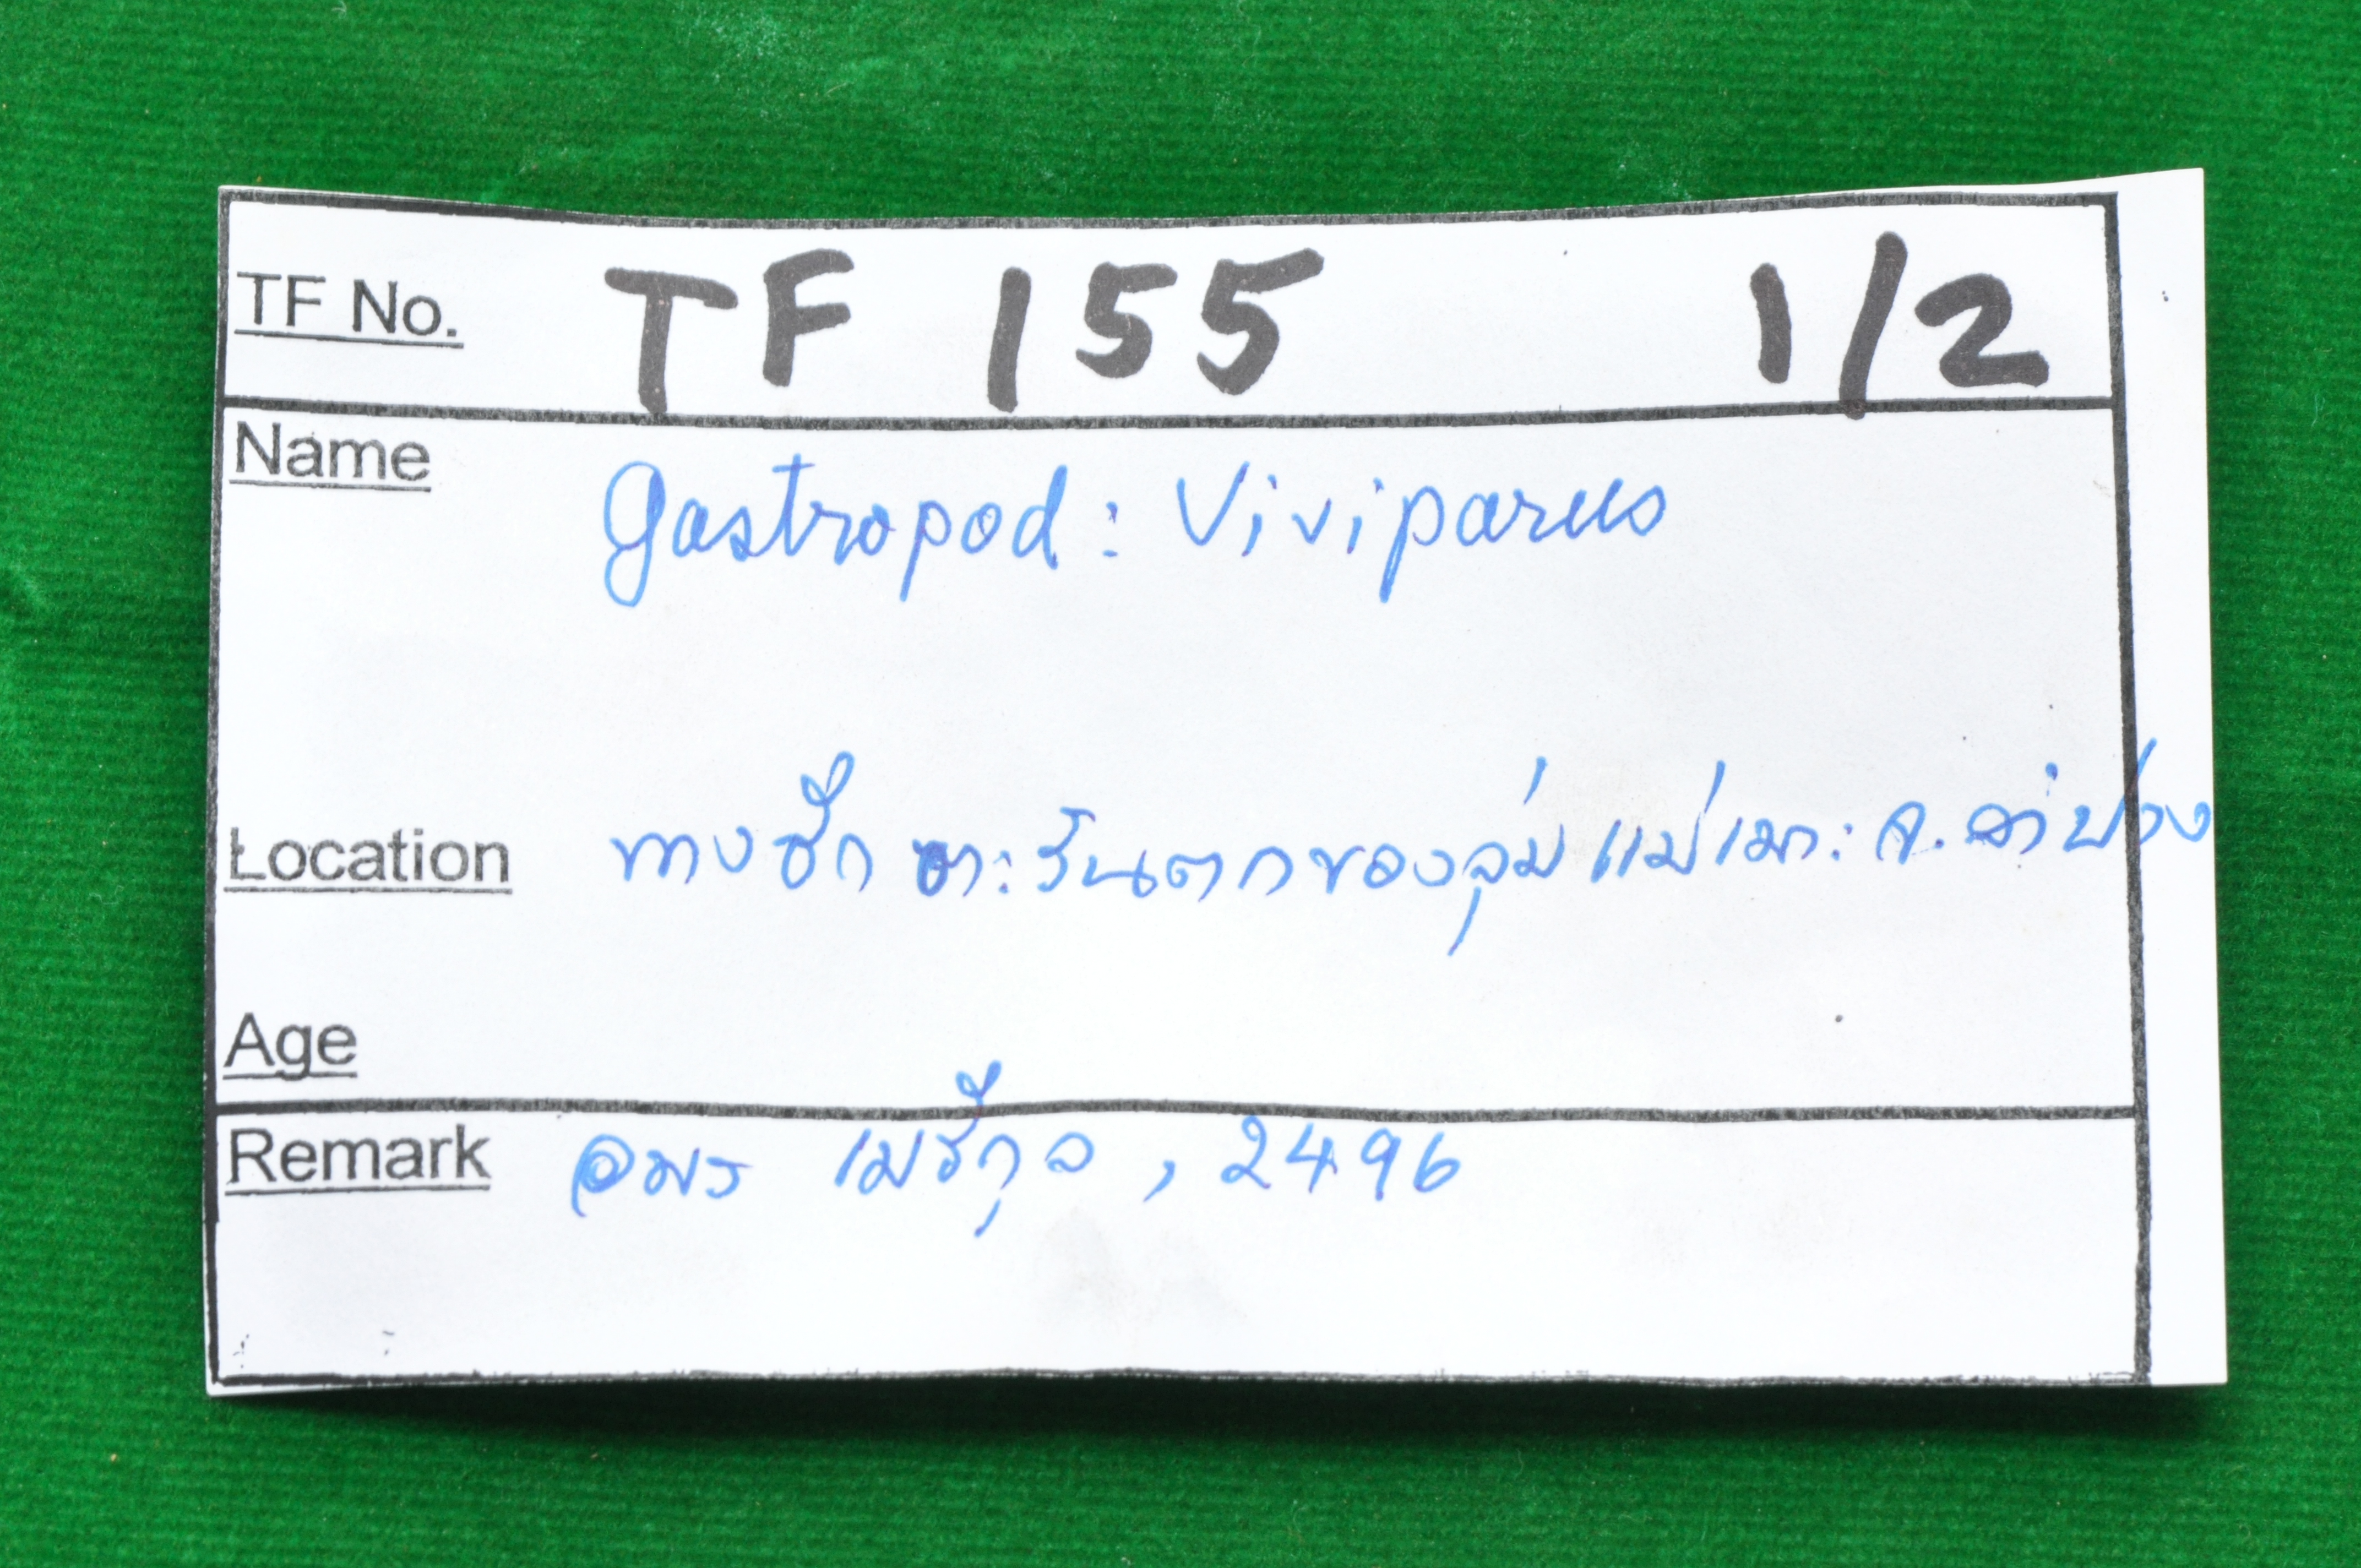 TF No. TF 155 1/2
Name gastropod: Viviparus
Location ทางซีกตะวันตกของลุ่มแม่เมาะ จ. ลำปาง
Age
Remark อมร เมธีกุล, 2496